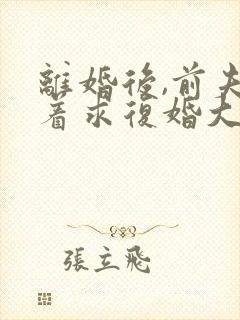 離婚後,前夫
着求復婚大
張立飛